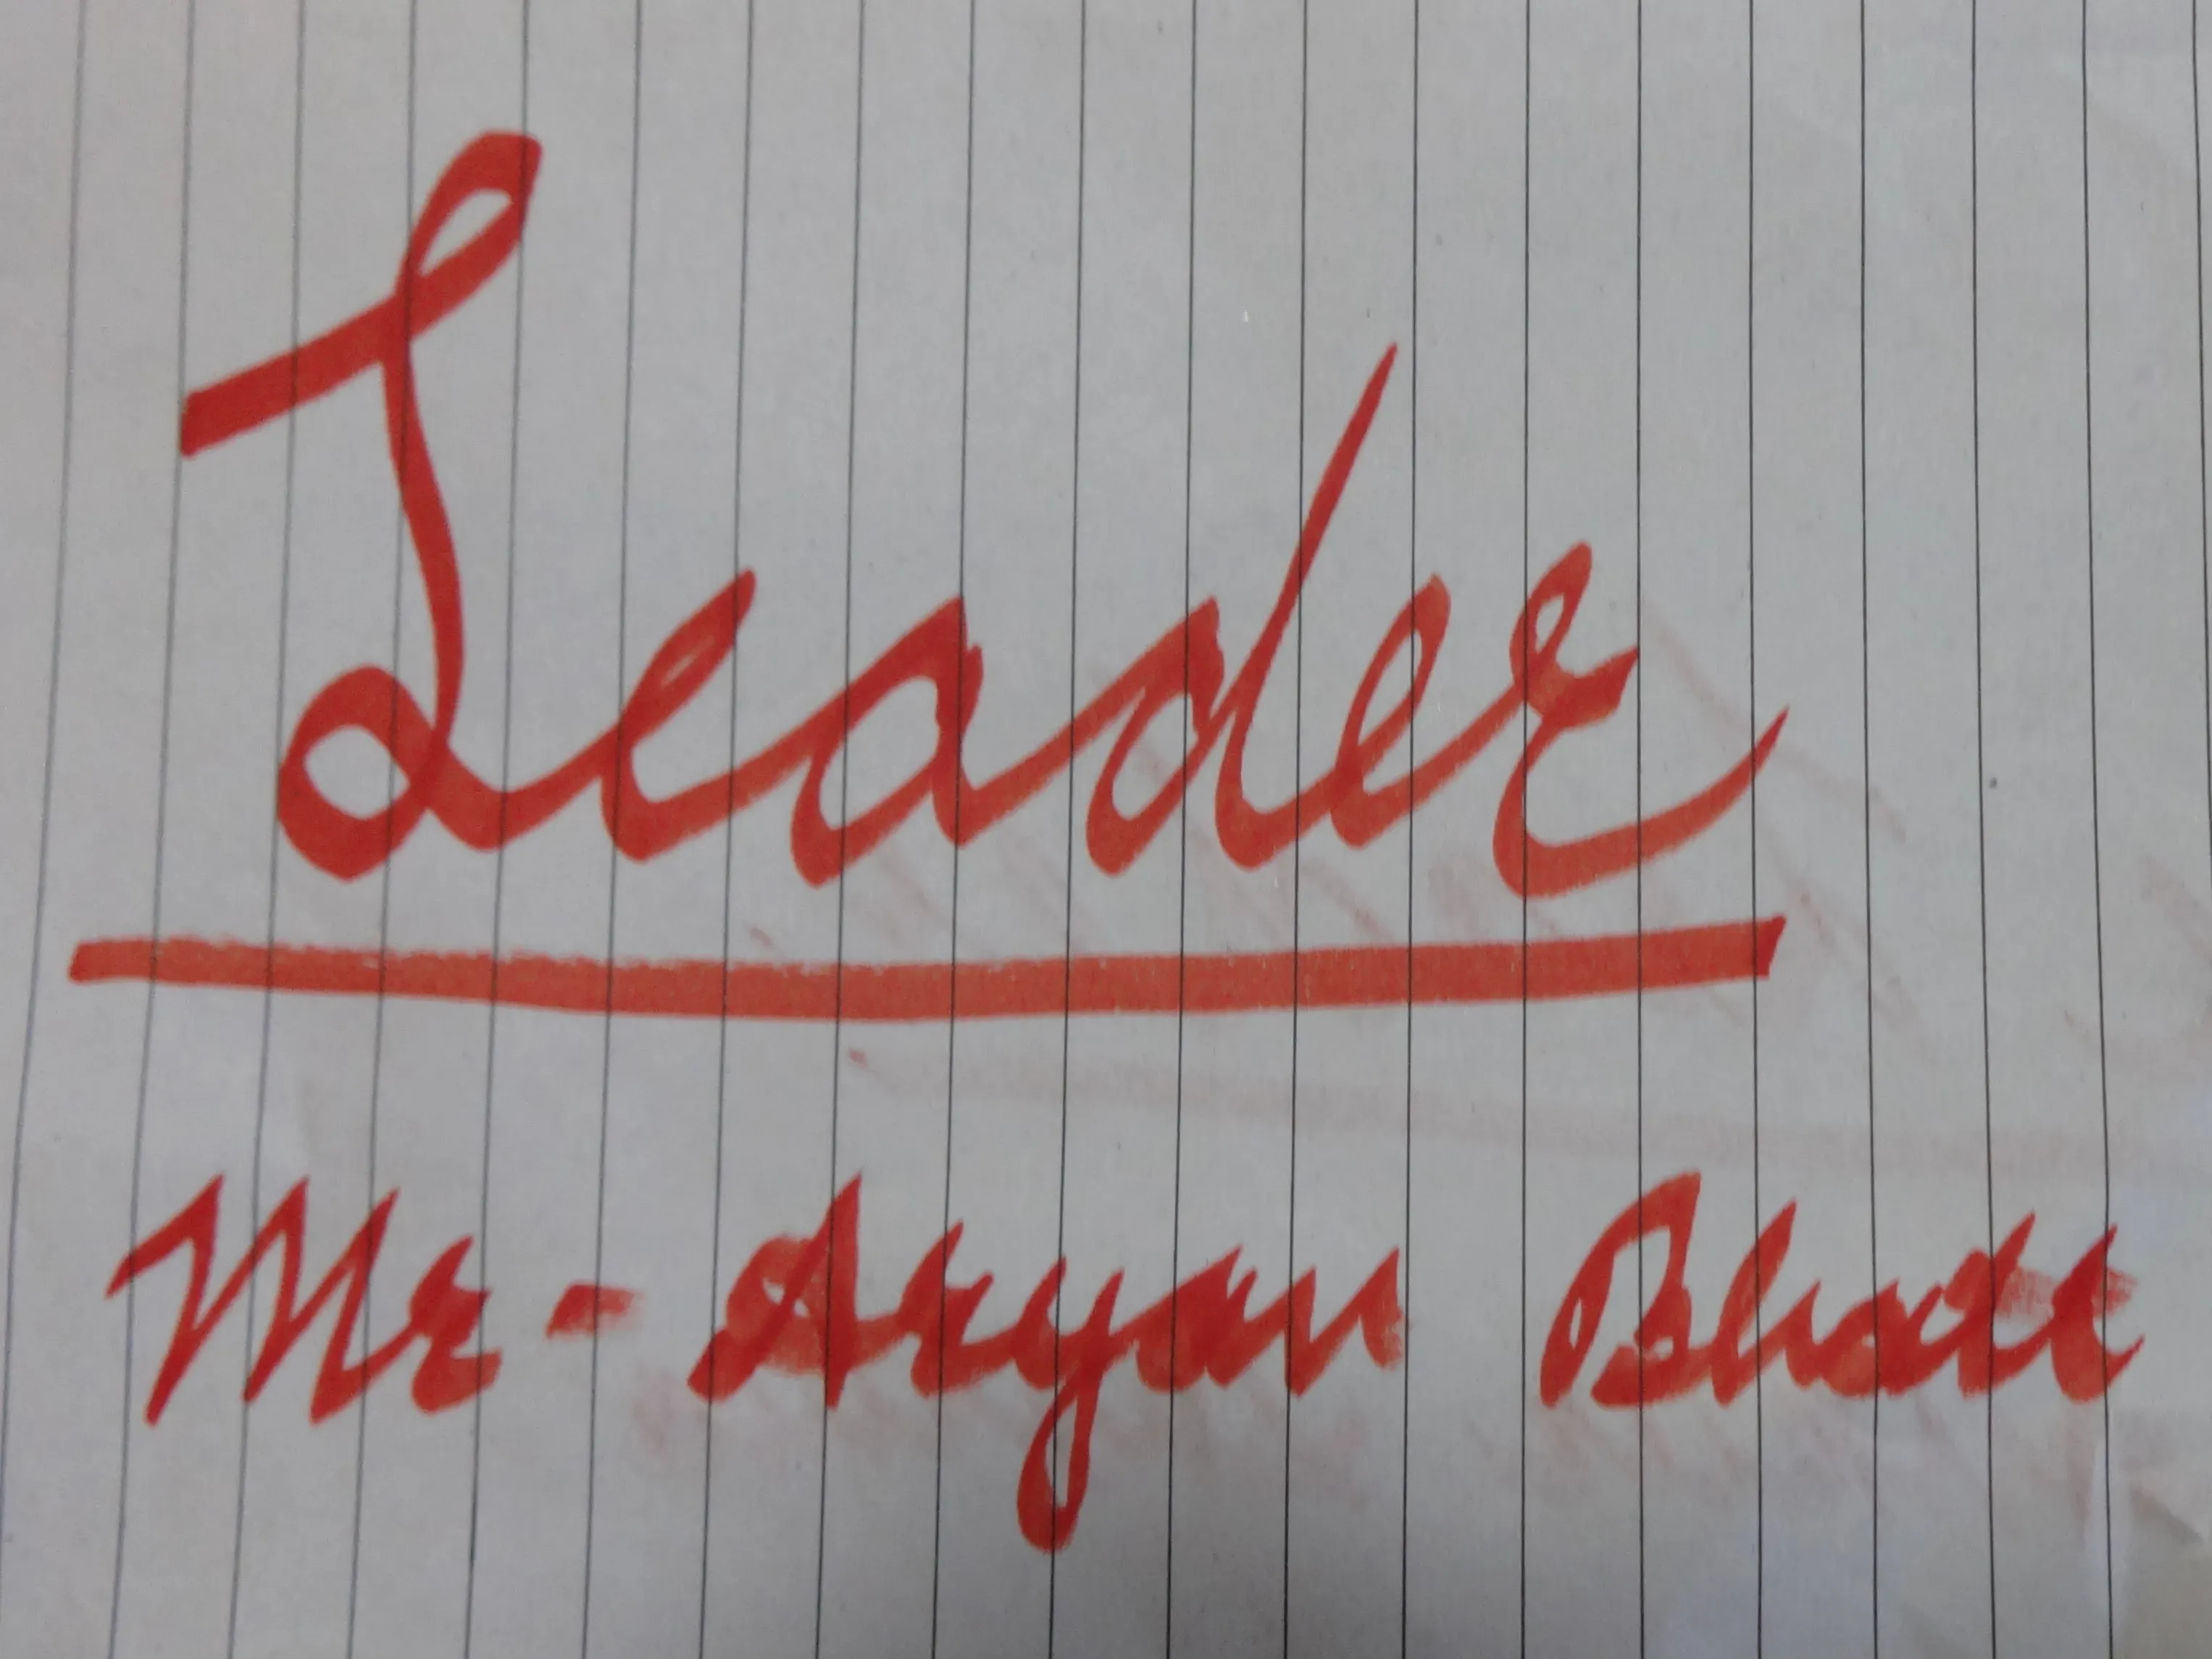 Leader
Mr - Aryan Bhatt